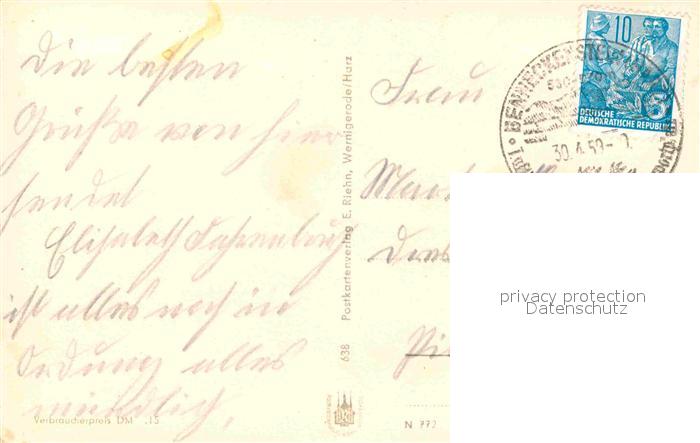 Die besten
Grüße von hier
sendet
Elisabeth
ist alles noch in
Ordung alles
mündlich,
Verbraucherpreis DM .15
638 Postkartenverlag E. Riehn, Wernigerode/Harz
Frau
Dres
N 772
10
DEUTSCHE
DEMOKRATISCHE REPUBLIK
BENNECKENSTEIN
30.4.59-
privacy protection
Datenschutz